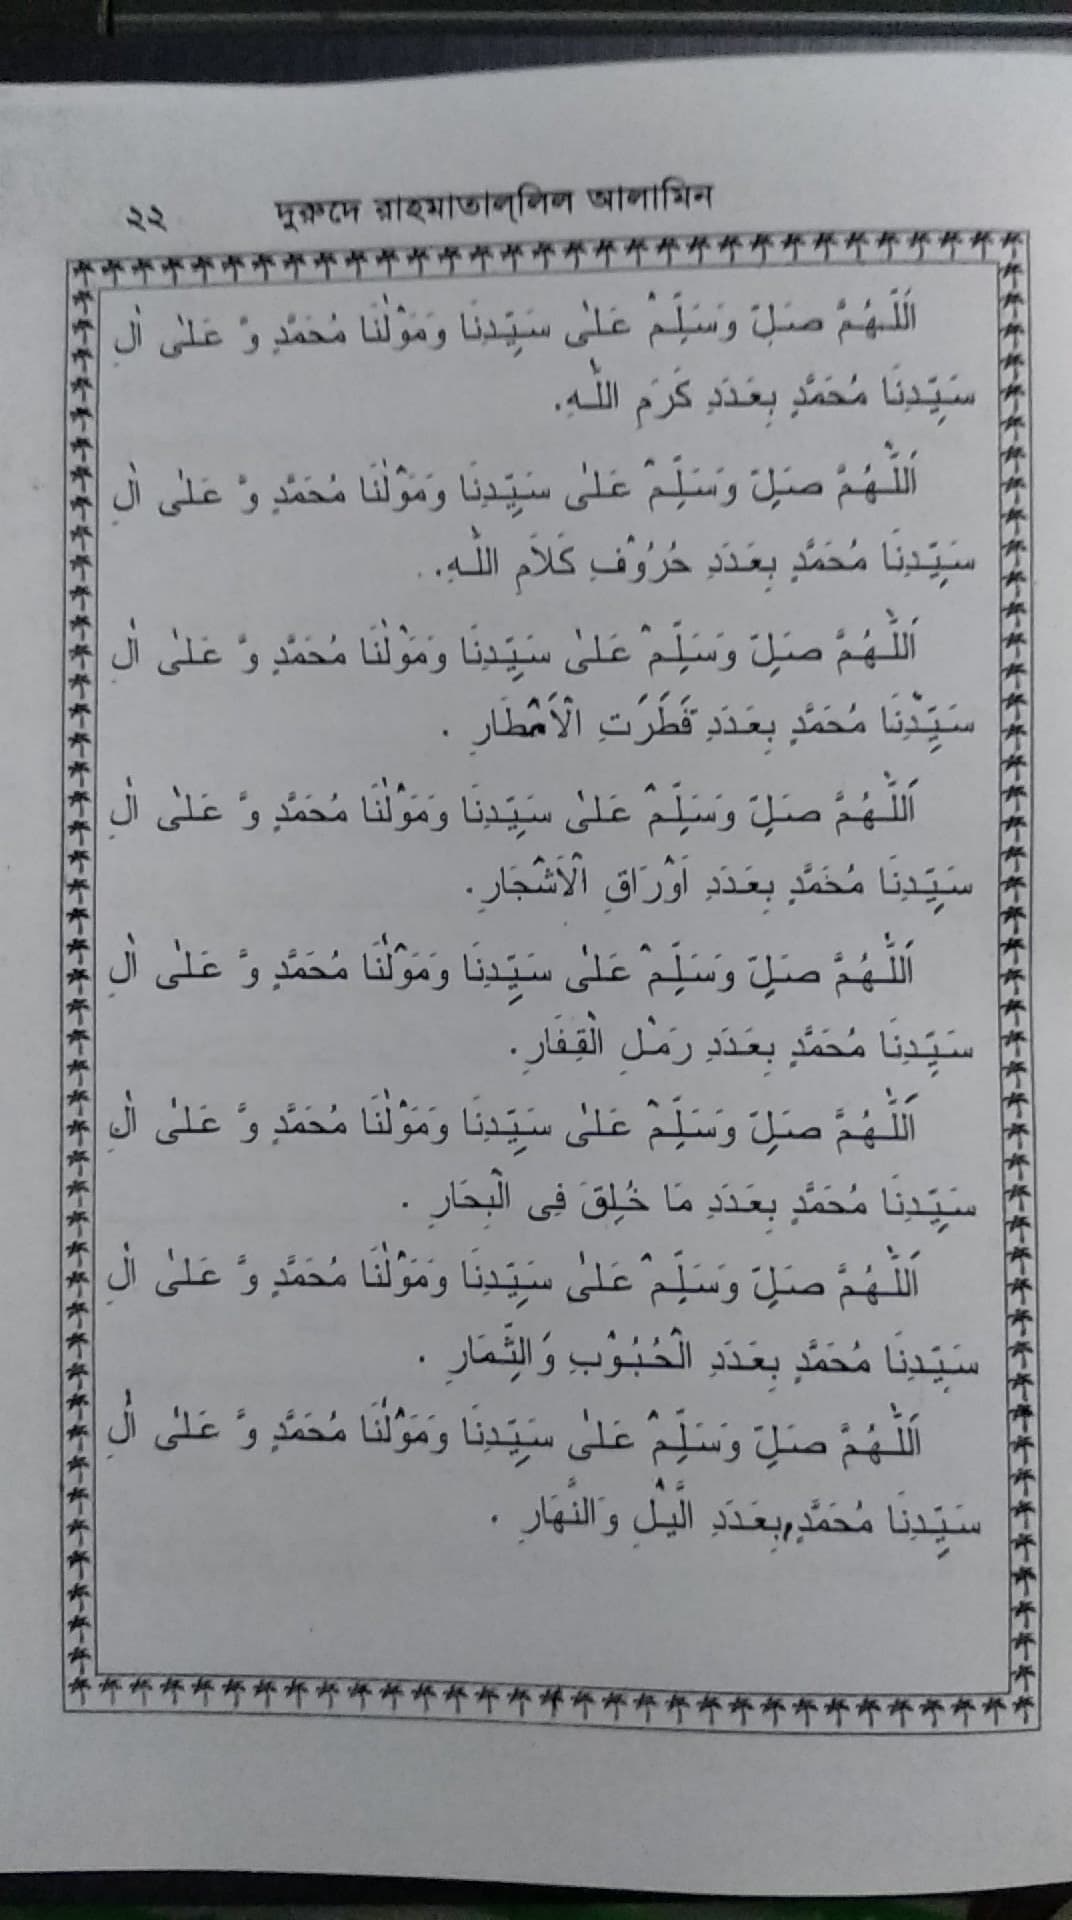 ২২ দুরুদে রাহমাতাল্লিল আলামিন
اَللّٰهُمَّ صَلِّ وَسَلِّمْ عَلٰى سَيِّدِنَا وَمَوْلٰنَا مُحَمَّدٍ وَّ عَلٰى اٰلِ
سَيِّدِنَا مُحَمَّدٍ بِعَدَدِ كَرَمِ اللّٰهِ.
اَللّٰهُمَّ صَلِّ وَسَلِّمْ عَلٰى سَيِّدِنَا وَمَوْلٰنَا مُحَمَّدٍ وَّ عَلٰى اٰلِ
سَيِّدِنَا مُحَمَّدٍ بِعَدَدِ حُرُوْفِ كَلَامِ اللّٰهِ.
اَللّٰهُمَّ صَلِّ وَسَلِّمْ عَلٰى سَيِّدِنَا وَمَوْلٰنَا مُحَمَّدٍ وَّ عَلٰى اٰلِ
سَيِّدِنَا مُحَمَّدٍ بِعَدَدِ قَطَرَتِ الْاَمْطَارِ .
اَللّٰهُمَّ صَلِّ وَسَلِّمْ عَلٰى سَيِّدِنَا وَمَوْلٰنَا مُحَمَّدٍ وَّ عَلٰى اٰلِ
سَيِّدِنَا مُحَمَّدٍ بِعَدَدِ اَوْرَاقِ الْاَشْجَارِ.
اَللّٰهُمَّ صَلِّ وَسَلِّمْ عَلٰى سَيِّدِنَا وَمَوْلٰنَا مُحَمَّدٍ وَّ عَلٰى اٰلِ
سَيِّدِنَا مُحَمَّدٍ بِعَدَدِ رَمْلِ الْقِفَارِ.
اَللّٰهُمَّ صَلِّ وَسَلِّمْ عَلٰى سَيِّدِنَا وَمَوْلٰنَا مُحَمَّدٍ وَّ عَلٰى اٰلِ
سَيِّدِنَا مُحَمَّدٍ بِعَدَدِ مَا خُلِقَ فِى الْبِحَارِ .
اَللّٰهُمَّ صَلِّ وَسَلِّمْ عَلٰى سَيِّدِنَا وَمَوْلٰنَا مُحَمَّدٍ وَّ عَلٰى اٰلِ
سَيِّدِنَا مُحَمَّدٍ بِعَدَدِ الْحُبُوْبِ وَالثِّمَارِ .
اَللّٰهُمَّ صَلِّ وَسَلِّمْ عَلٰى سَيِّدِنَا وَمَوْلٰنَا مُحَمَّدٍ وَّ عَلٰى اٰلِ
سَيِّدِنَا مُحَمَّدٍ بِعَدَدِ الَّيْلِ وَالنَّهَارِ .